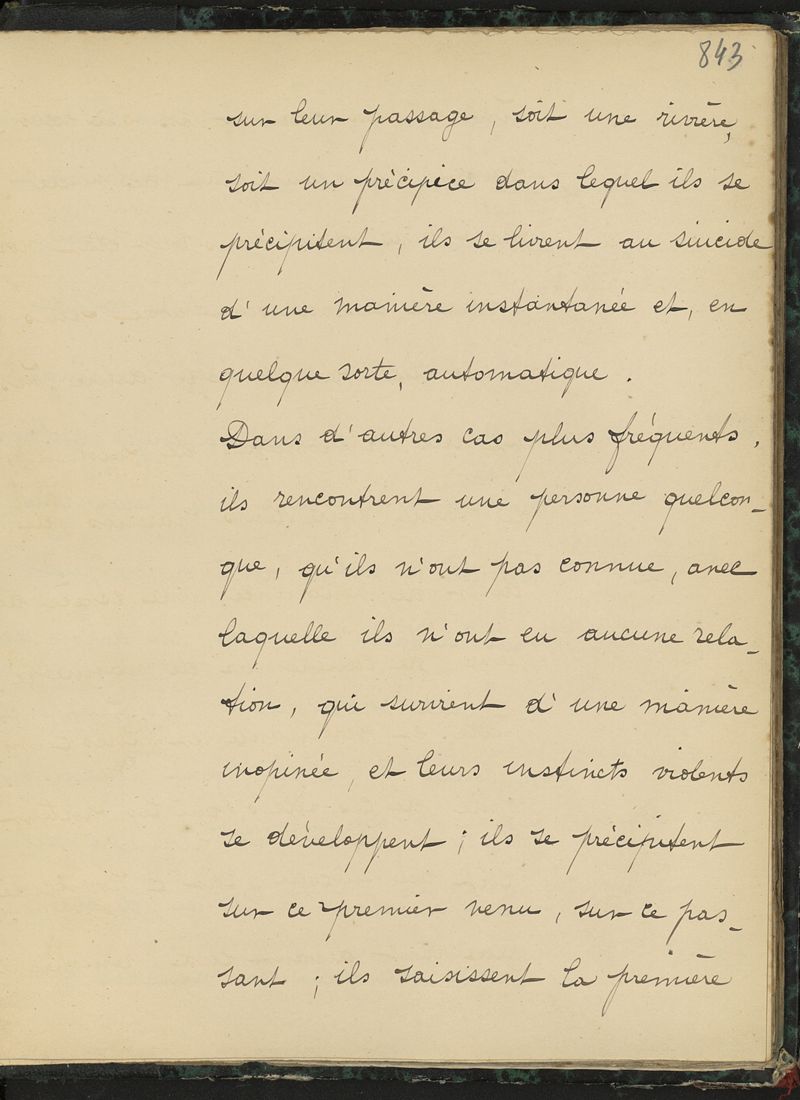 843
sur leur passage, soit une rivière,
soit un précipice dans lequel ils se
précipitent, ils se livrent au suicide
d'une manière instantanée et, en
quelque sorte, automatique.
Dans d'autres cas plus fréquents,
ils rencontrent une personne quelcon-
que, qu'ils n'ont pas connue, avec
laquelle ils n'ont eu aucune rela-
tion, qui survient d'une manière
inopinée, et leurs instincts violents
se développent; ils se précipitent
sur ce premier venu, sur ce pas-
sant; ils saisissent la première